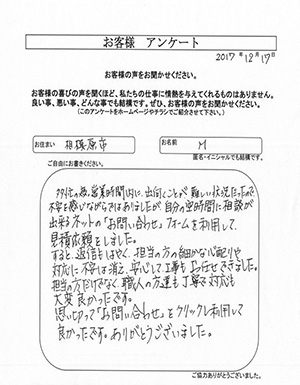 お客様 アンケート
2017年12月17日
お客様の声をお聞かせください。
お客様の喜びの声を聞くほど、私たちの仕事に情熱を与えてくれるものはありません。
良い事、悪い事、どんな事でも結構です。ぜひ、お客様の声をお聞かせください。
(このアンケートをホームページやチラシでご紹介させて下さい。)
お住まい 相模原市
お名前 M
匿名・イニシャルでも結構です。
ご自由にお書きください。
営業時間内に、出向くことが難しい状況だったので
不安を感じながらではありましたが、自分の空時間に相談が
出来るネットの「お問い合わせ」フォームを利用して
見積依頼をしました。
すると、返信もはやく、担当の方の細かな心配りや
対応に不安は消え、安心して工事もお任せできました。
担当の方だけでなく職人の方達も丁寧で対応も
大変良かったです。
思い切って「お問い合わせ」をクリックし利用して
良かったです。ありがとうございました。
ご協力ありがとうございました。